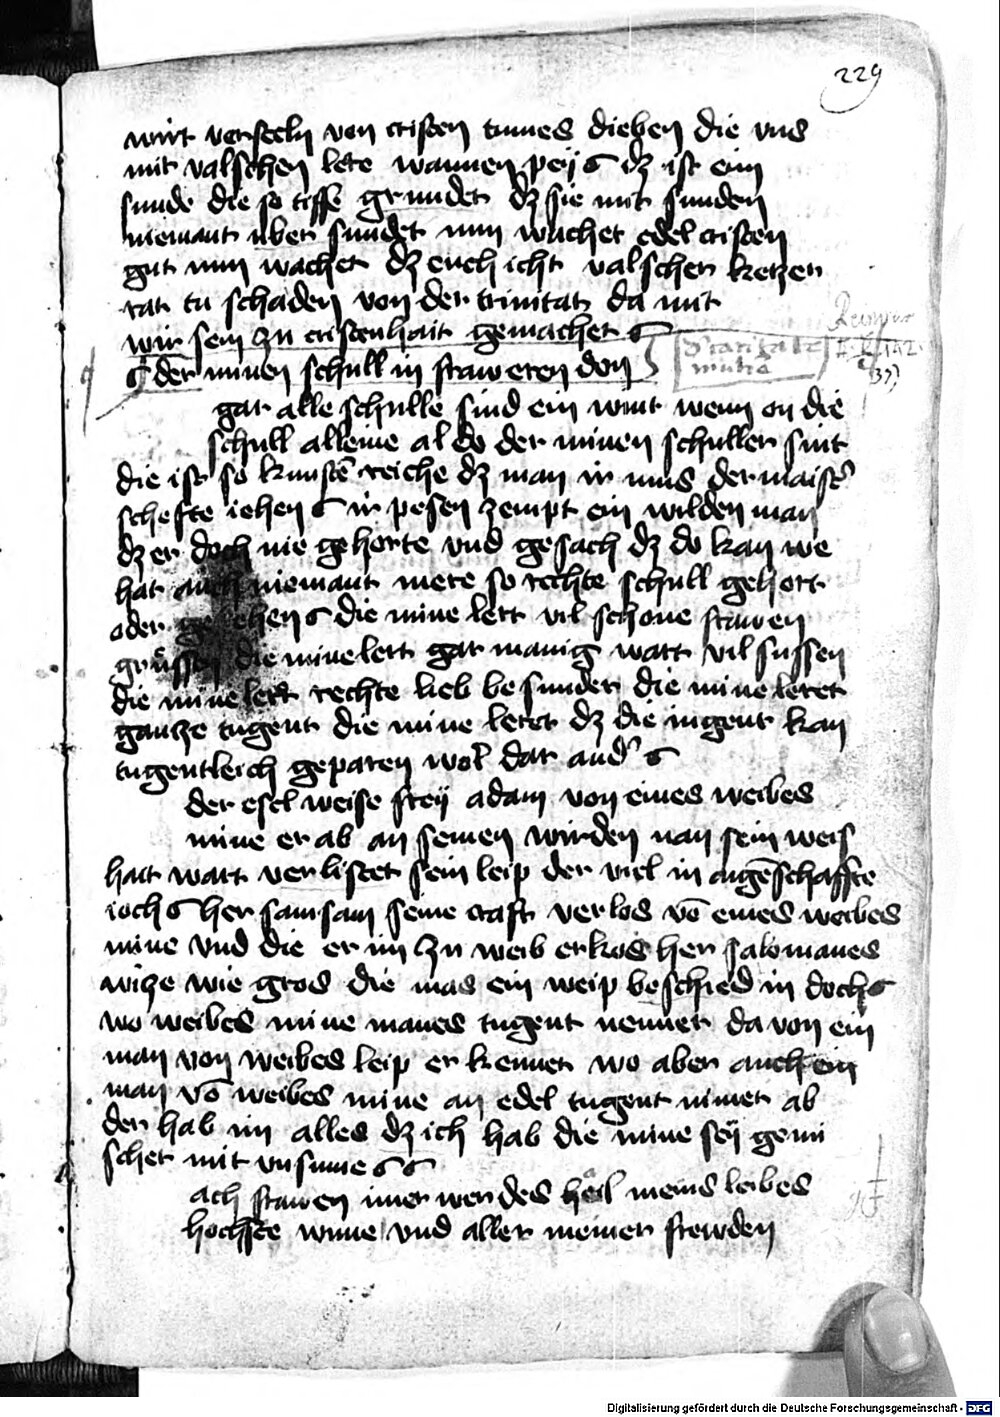 229
wirt versteln von cristen tumes dieben die vns
mit valschen lere wannen pey dz ist ein
sunde die so tiffe grundet dz sie mit sunden
niemant uber sundet nun wachet edel cristen
gut nun wachet dz euch icht valscher ketzer
rat tu schaden von der trinitat da mit
wir sein zu cristenhait gemachet
der minen schull in fraweren don
gar alle schulle sind ein wint wenn on die
schull alleine al do der minen schuller sint
die ist so kunstē reiche dz man ir mus der maist
schefte iehen ir pesen zempt ein wilden man
dz er doch nie gehorte vnd gesach dz do kan we
hat auch niemant mere so rechte schull gehort
oder gesehen die mine lert vil schone frawen
grussen die mine lert gar manig wart vil sussen
die mine lert rechte lieb besunder die mine leret
gantze tugent die mine leret dz die iugent kan
tugentleich geparen wol dar and
der esel weise frey adam von eines weibes
mine er ab an seinen wirden nan sein weis
hait wart verlistet sein leip der viel in angēschaffte
ioch her samsam seine craft verlos vō eines weibes
mine vnd die er im zu weib erkos her salomanes
witze wie gros die was ein weip beschied in doch
wo weibes mine manes tugent nennet da von ein
man von weibes leip er kennet wo aber auch ein
man vō weibes mine an edel tugent nimet ab
der hab im alles dz ich hab die mine sey gemi
schet mit vnsinne
ach frawen imer wer des heil meins leibes
hochste wune vnd aller meiner frewden
Digitalisierung gefördert durch die Deutsche Forschungsgemeinschaft - DFG